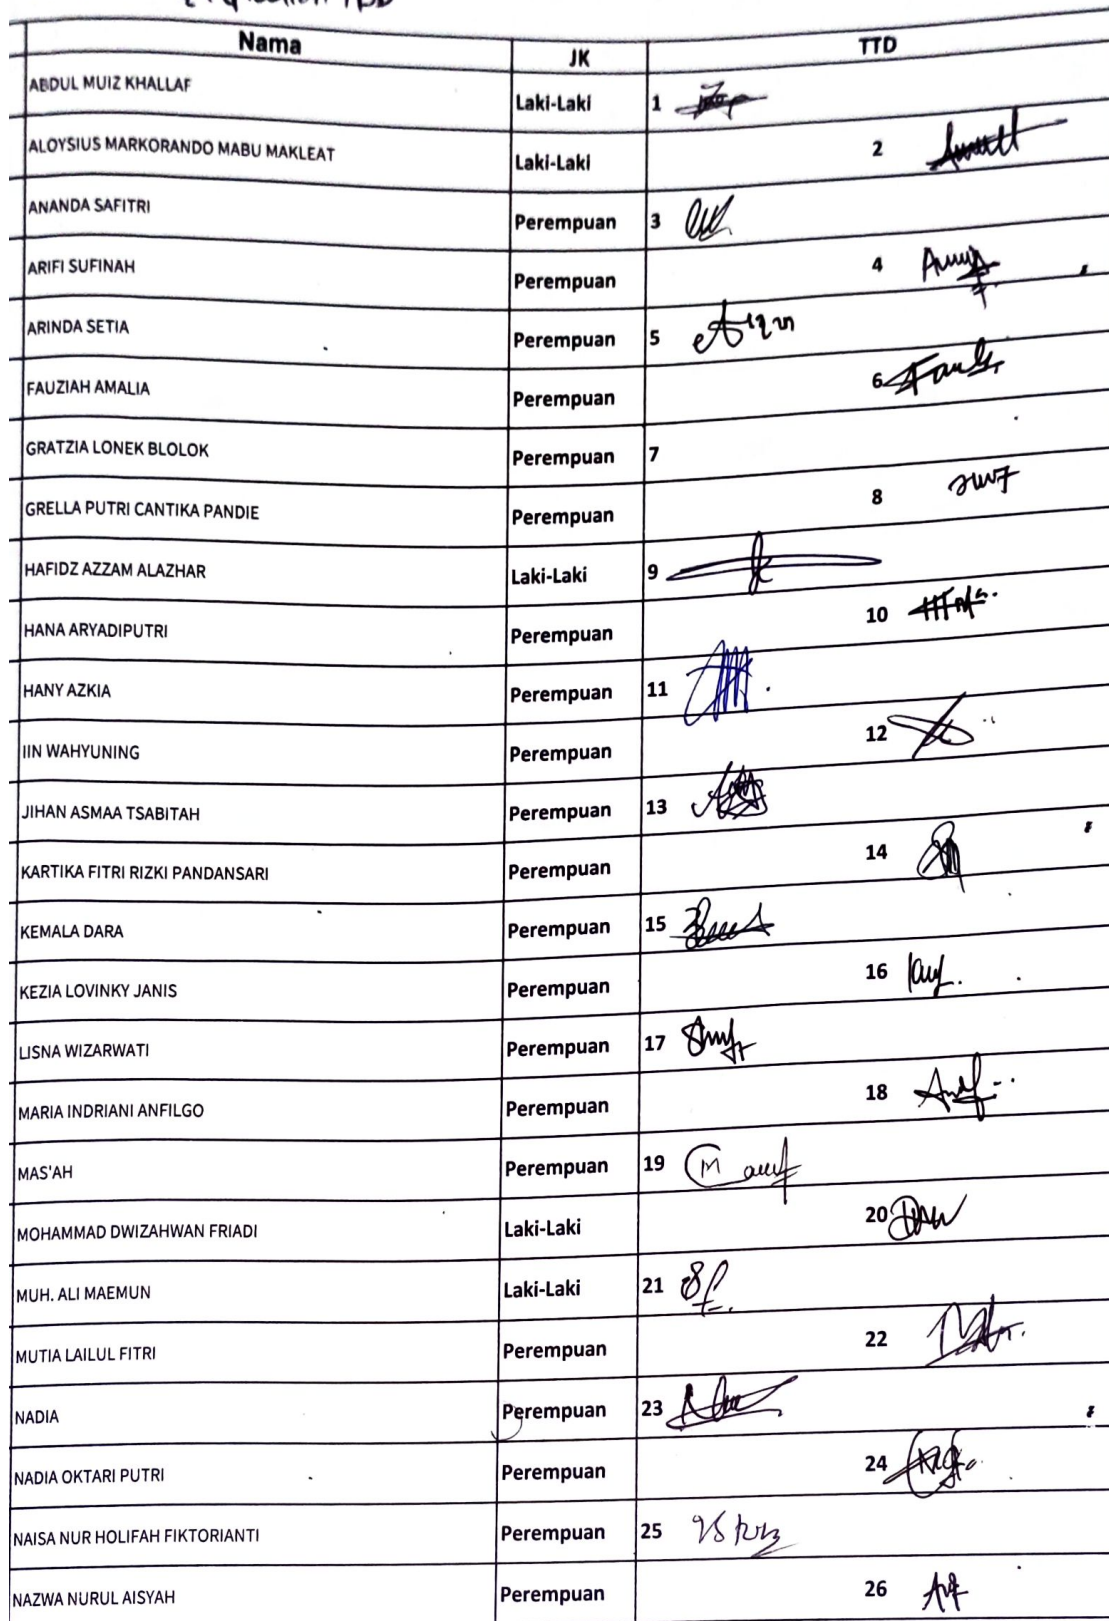 Nama JK TTD
ABDUL MUIZ KHALLAF Laki-Laki 1
ALOYSIUS MARKORANDO MABU MAKLEAT Laki-Laki 2
ANANDA SAFITRI Perempuan 3
ARIFI SUFINAH Perempuan 4
ARINDA SETIA Perempuan 5
FAUZIAH AMALIA Perempuan 6
GRATZIA LONEK BLOLOK Perempuan 7
GRELLA PUTRI CANTIKA PANDIE Perempuan 8
HAFIDZ AZZAM ALAZHAR Laki-Laki 9
HANA ARYADIPUTRI Perempuan 10
HANY AZKIA Perempuan 11
IIN WAHYUNING Perempuan 12
JIHAN ASMAA TSABITAH Perempuan 13
KARTIKA FITRI RIZKI PANDANSARI Perempuan 14
KEMALA DARA Perempuan 15
KEZIA LOVINKY JANIS Perempuan 16
LISNA WIZARWATI Perempuan 17
MARIA INDRIANI ANFILGO Perempuan 18
MAS'AH Perempuan 19
MOHAMMAD DWIZAHWAN FRIADI Laki-Laki 20
MUH. ALI MAEMUN Laki-Laki 21
MUTIA LAILUL FITRI Perempuan 22
NADIA Perempuan 23
NADIA OKTARI PUTRI Perempuan 24
NAISA NUR HOLIFAH FIKTORIANTI Perempuan 25
NAZWA NURUL AISYAH Perempuan 26